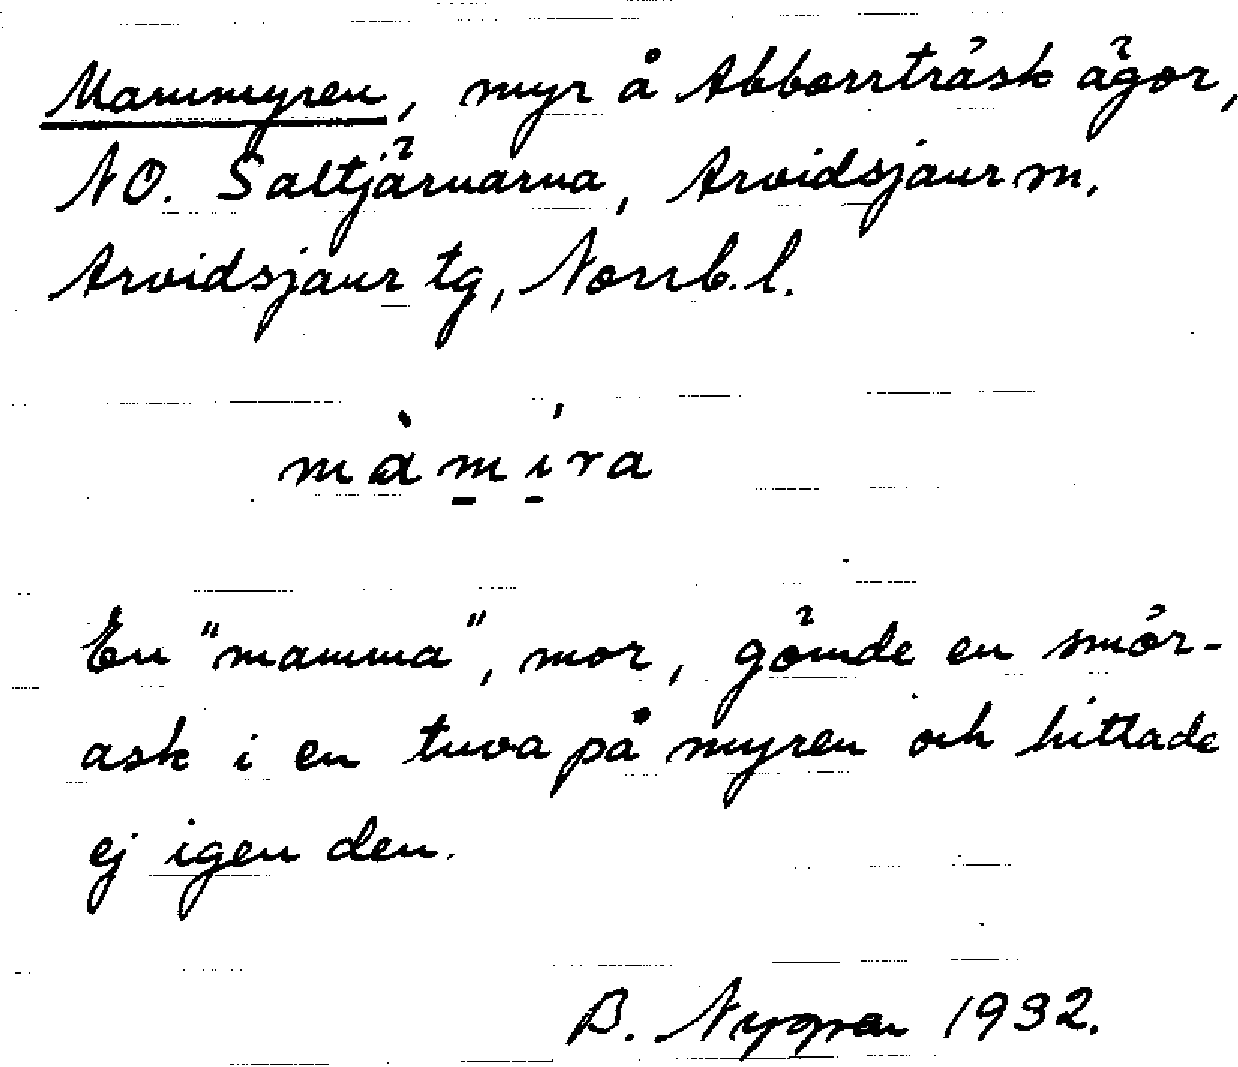 Mammyren, myr å Abborrträsk ägor,
NO. Saltjärnarna, Arvidsjaur m.
Arvidsjaur tg, Norrb. l.
màmíra
En "mamma", mor, gömde en smör-
ask i en tuva på myren och hittade
ej igen den.
B. Nygren 1932.